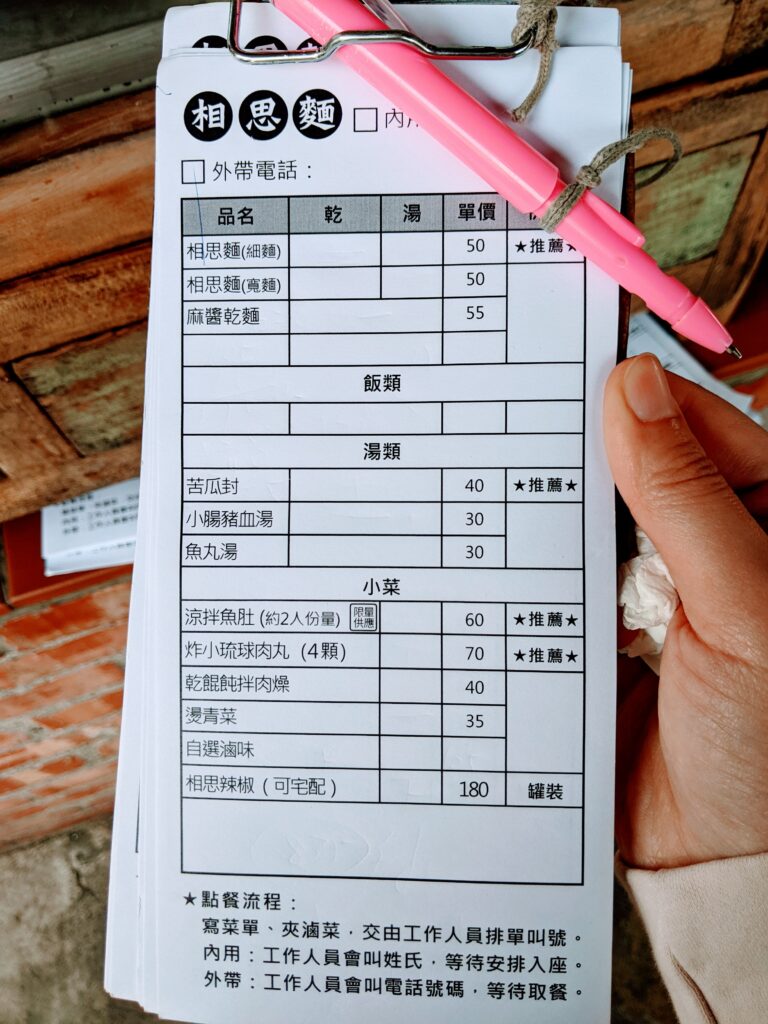 相思麵 □內
□外帶電話：
品名 乾 湯 單價
相思麵(細麵) 50 ★推薦★
相思麵(寬麵) 50
麻醬乾麵 55
飯類
湯類
苦瓜封 40 ★推薦★
小腸豬血湯 30
魚丸湯 30
小菜
涼拌魚肚(約2人份量) 限量供應 60 ★推薦★
炸小琉球肉丸(4顆) 70 ★推薦★
乾餛飩拌肉燥 40
燙青菜 35
自選滷味
相思辣椒(可宅配) 180 罐裝
★點餐流程：
寫菜單、夾滷菜，交由工作人員排單叫號。
內用：工作人員會叫姓氏，等待安排入座。
外帶：工作人員會叫電話號碼，等待取餐。